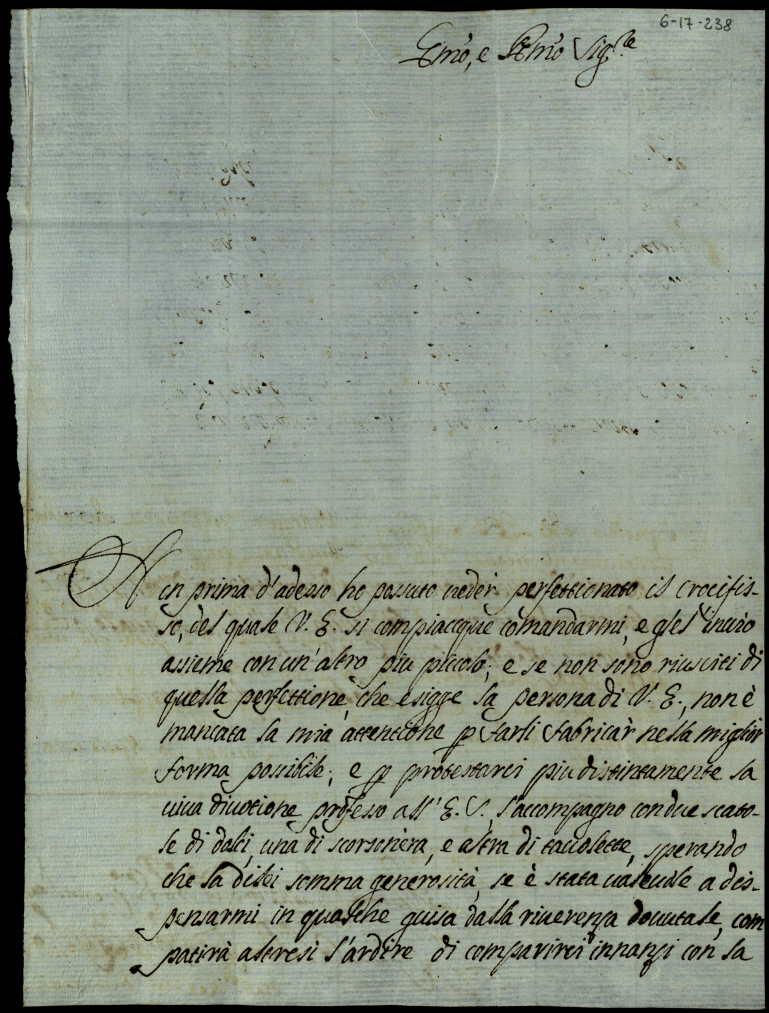 6-17-238
Emo, e Remo Sig.re
Non prima d'adesso ho possuto veder perfettionato il crocifis-
so, del quale V. E. si compiacque comandarmi, e gliel' invio
assieme con un'altro più piccolo, e se non sono riusciti di
quella perfettione, che esigge la persona di V. E., non è
mancata la mia attentione p farli fabricar nella miglior
forma possibile; e p protestarci più distintamente la
viva divotione professo all' E. V. l'accompagno con due scato-
le di dolci, una di scorsonera, e altra di tavolette, sperando
che la di lei somma generosità, se è stata valevole a dis-
pensarmi in qualche guisa dalla riverenza dovutale, com
patirà altresì l'ardire di comparirci innanzi con la